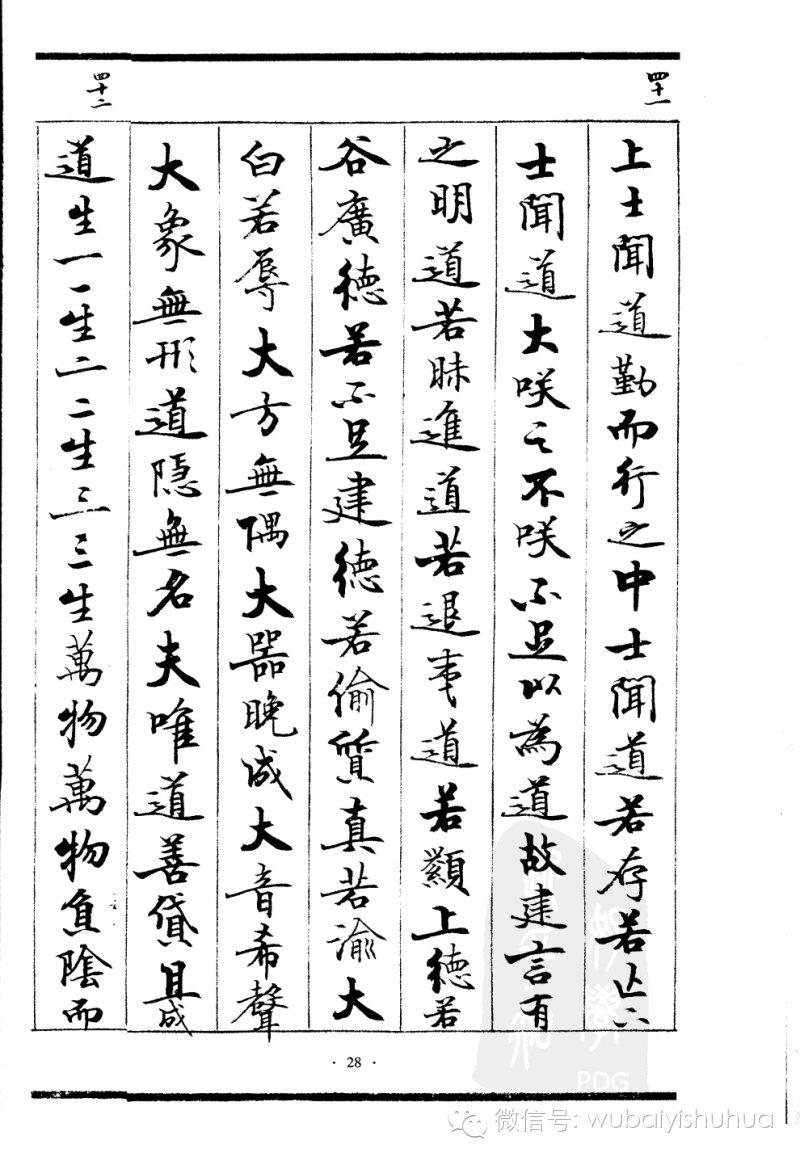 四十一
上士聞道勤而行之中士聞道若存若亡下
士聞道大咲之不咲不足以為道故建言有
之明道若昧進道若退夷道若纇上德若
谷廣德若不足建德若偷質真若渝大
白若辱大方無隅大器晚成大音希聲
大象無形道隱無名夫唯道善貸且成
四十二
道生一一生二二生三三生萬物萬物負陰而
· 28 ·
PDG
微信号: wubaiyishuhua